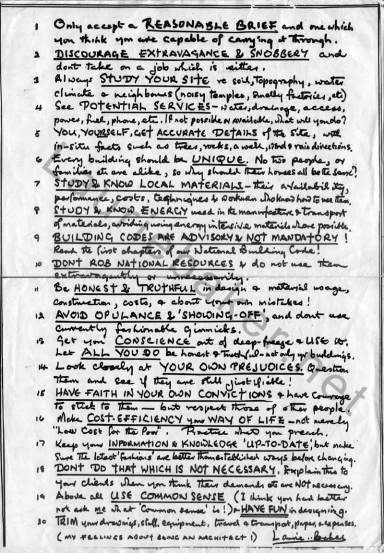 1 Only accept a REASONABLE BRIEF and one which
you think you are capable of carrying it through.
2 DISCOURAGE EXTRAVAGANCE & SNOBBERY and
dont take on a job which is either.
3 Always STUDY YOUR SITE re soil, topography, water
climate & neighbours (noisy temples, smelly factories, etc)
4 See POTENTIAL SERVICES - water, drainage, access,
power, fuel, phone, etc. If not possible or available, what will you do?
5 YOU, YOURSELF, GET ACCURATE DETAILS of the site, with
in-situ facts such as trees, rocks, a well, wind & rain directions.
6 Every building should be UNIQUE. No two people, or
families etc are alike, so why should their houses all be the same?
7 STUDY & KNOW LOCAL MATERIALS - their availability,
performance, costs, techniques & workmen who know how to use them.
8 STUDY & KNOW ENERGY used in the manufacture & transport
of materials, avoiding using energy intensive materials where possible.
9 BUILDING CODES ARE ADVISORY & NOT MANDATORY!
Read the first chapter of our National Building Code!
10 DONT ROB NATIONAL RESOURCES & do not use them
extravagantly or unnecessarily
11 Be HONEST & TRUTHFUL in design & material usage,
construction, costs, & about your own mistakes!
12 AVOID OPULANCE & 'SHOWING-OFF', and dont use
currently fashionable gimmicks.
13 Get your CONSCIENCE out of deep freeze & USE it.
Let ALL YOU DO be honest & truthful - not only your buildings.
14 Look closely at YOUR OWN PREJUDICES. Question
them and see if they are still justifiable!
15 HAVE FAITH IN YOUR OWN CONVICTIONS & have courage
to stick to them — but respect those of other people.
16 Make COST-EFFICIENCY your WAY OF LIFE - not merely
'Low Cost for the Poor'. Practice what you preach.
17 Keep your INFORMATION & KNOWLEDGE 'UP-TO-DATE', but make
sure the latest 'fashions' are better than established ways before changing.
18 DONT DO THAT WHICH IS NOT NECESSARY. Explain this to
your clients when you think their demands etc are NOT necessary.
19 Above all USE COMMON SENSE (I think you had better
not ask me what 'Common sense' is!) & HAVE FUN in designing.
20 TRIM your drawings, staff, equipment, travel & transport, paper, & expenses.
(MY FEELINGS ABOUT BEING AN ARCHITECT!) Laurie Baker